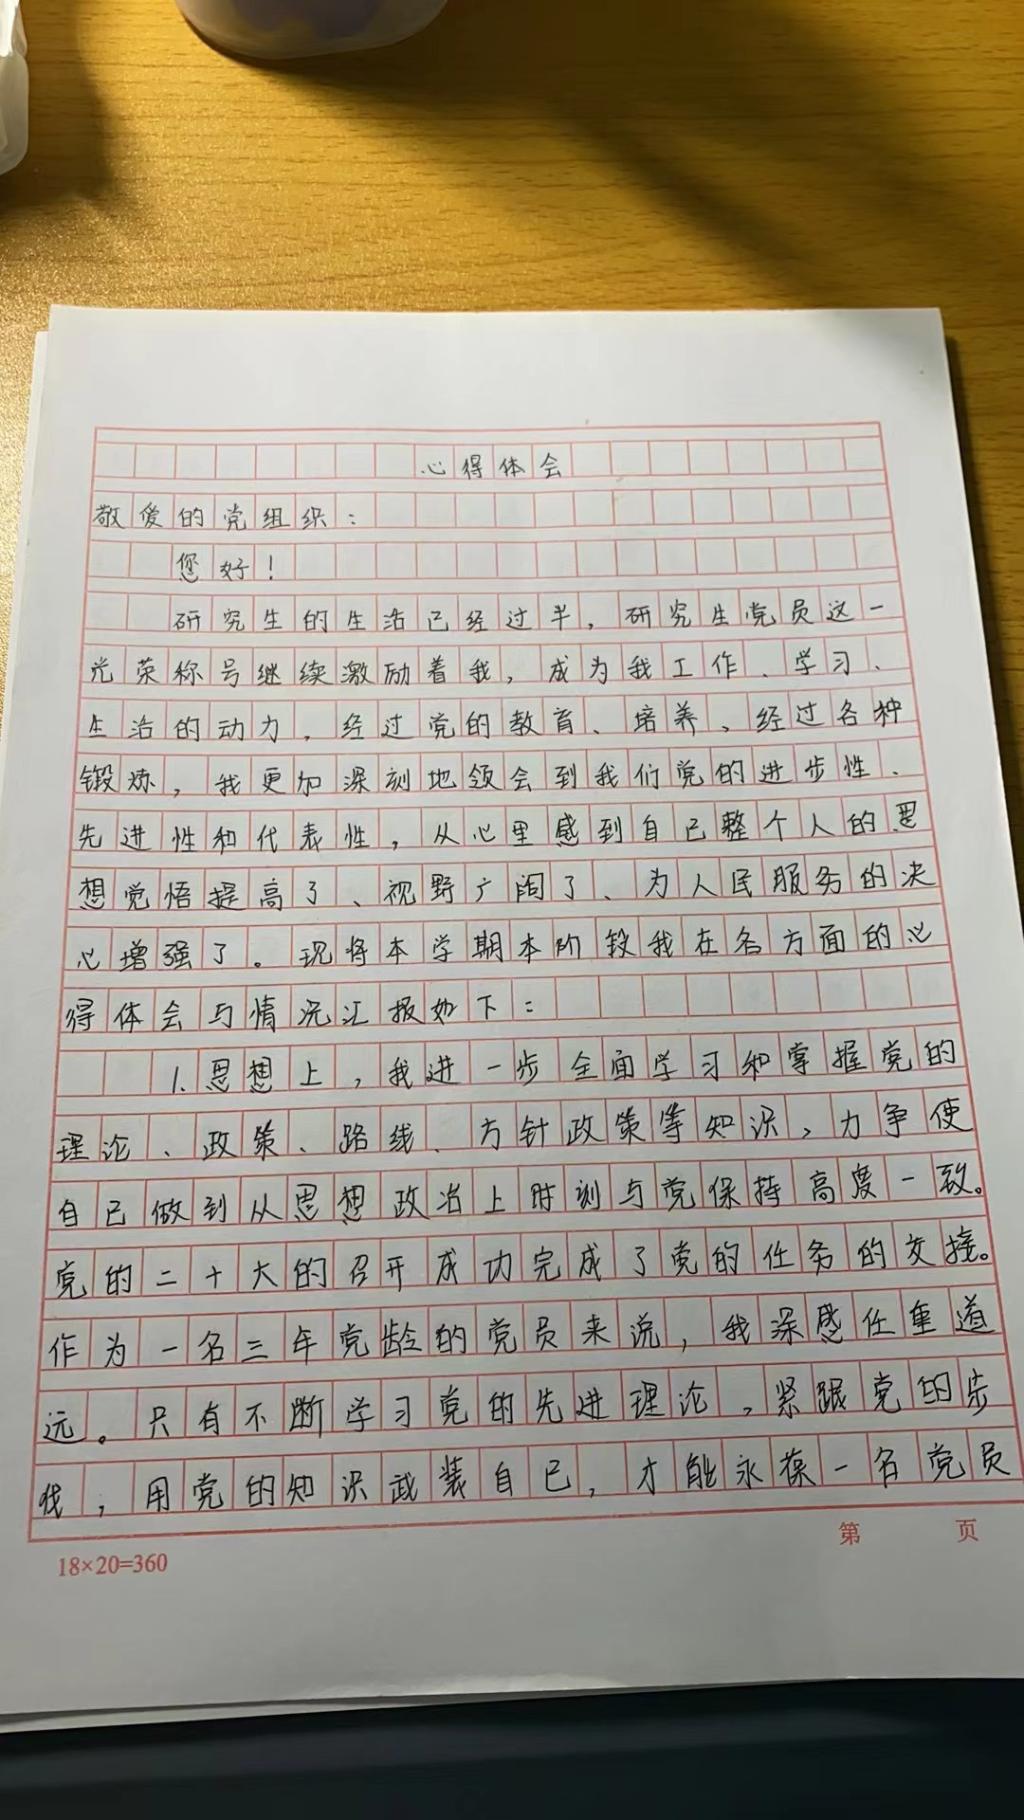 心得体会
敬爱的党组织：
您好！
研究生的生活已经过半，研究生党员这一
光荣称号继续激励着我，成为我工作、学习、
生活的动力，经过党的教育、培养、经过各种
锻炼，我更加深刻地领会到我们党的进步性、
先进性和代表性，从心里感到自己整个人的思
想觉悟提高了、视野广阔了、为人民服务的决
心增强了。现将本学期本阶段我在各方面的心
得体会与情况汇报如下：
1.思想上，我进一步全面学习和掌握党的
理论、政策、路线、方针政策等知识，力争使
自己做到从思想政治上时刻与党保持高度一致。
党的二十大的召开成功完成了党的任务的交接。
作为一名三年党龄的党员来说，我深感任重道
远。只有不断学习党的先进理论，紧跟党的步
伐，用党的知识武装自己，才能永葆一名党员
18×20=360
第 页